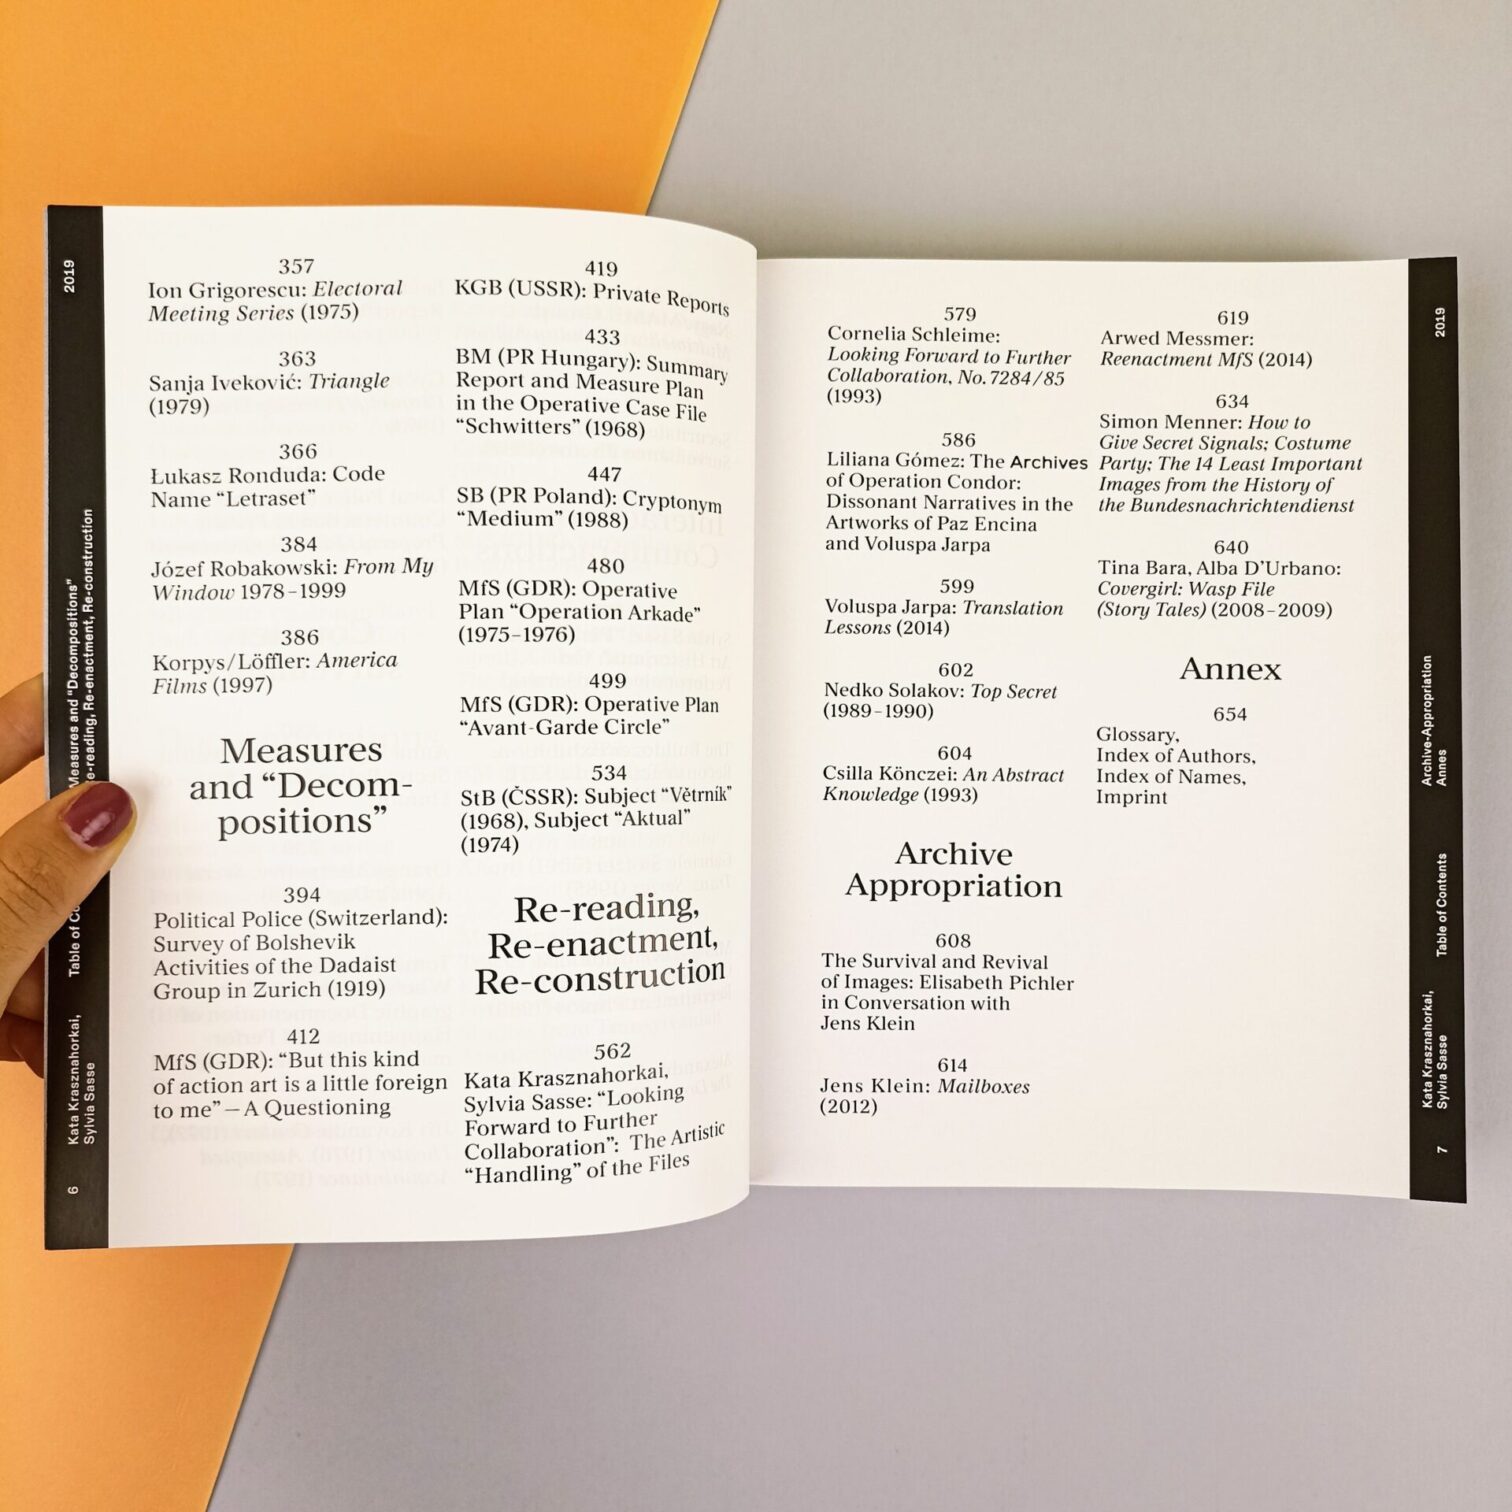 357
Ion Grigorescu: Electoral
Meeting Series (1975)
363
Sanja Iveković: Triangle
(1979)
366
Łukasz Ronduda: Code
Name “Letraset”
384
Józef Robakowski: From My
Window 1978–1999
386
Korpys/Löffler: America
Films (1997)
Measures
and “Decom-
positions”
394
Political Police (Switzerland):
Survey of Bolshevik
Activities of the Dadaist
Group in Zurich (1919)
412
MfS (GDR): “But this kind
of action art is a little foreign
to me” – A Questioning
419
KGB (USSR): Private Reports
433
BM (PR Hungary): Summary
Report and Measure Plan
in the Operative Case File
“Schwitters” (1968)
447
SB (PR Poland): Cryptonym
“Medium” (1988)
480
MfS (GDR): Operative
Plan “Operation Arkade”
(1975–1976)
499
MfS (GDR): Operative Plan
“Avant-Garde Circle”
534
StB (ČSSR): Subject “Větrník”
(1968), Subject “Aktual”
(1974)
Re-reading,
Re-enactment,
Re-construction
562
Kata Krasznahorkai,
Sylvia Sasse: “Looking
Forward to Further
Collaboration”: The Artistic
“Handling” of the Files
2019
Measures and “Decompositions”
Re-reading, Re-enactment, Re-construction
Table of
Kata Krasznahorkai,
Sylvia Sasse
6
579
Cornelia Schleime:
Looking Forward to Further
Collaboration, No. 7284/85
(1993)
586
Liliana Gómez: The Archives
of Operation Condor:
Dissonant Narratives in the
Artworks of Paz Encina
and Voluspa Jarpa
599
Voluspa Jarpa: Translation
Lessons (2014)
602
Nedko Solakov: Top Secret
(1989–1990)
604
Csilla Könczei: An Abstract
Knowledge (1993)
Archive
Appropriation
608
The Survival and Revival
of Images: Elisabeth Pichler
in Conversation with
Jens Klein
614
Jens Klein: Mailboxes
(2012)
619
Arwed Messmer:
Reenactment MfS (2014)
634
Simon Menner: How to
Give Secret Signals; Costume
Party; The 14 Least Important
Images from the History of
the Bundesnachrichtendienst
640
Tina Bara, Alba D’Urbano:
Covergirl: Wasp File
(Story Tales) (2008–2009)
Annex
654
Glossary,
Index of Authors,
Index of Names,
Imprint
2019
Archive-Appropriation
Annes
Table of Contents
Kata Krasznahorkai,
Sylvia Sasse
7